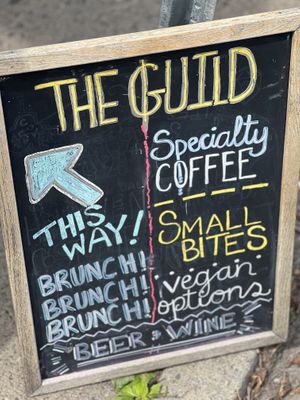 THE GUILD
THIS
WAY!
BRUNCH!
BRUNCH!
BRUNCH!
Specialty
COFFEE
SMALL
BITES
vegan
options
BEER & WINE